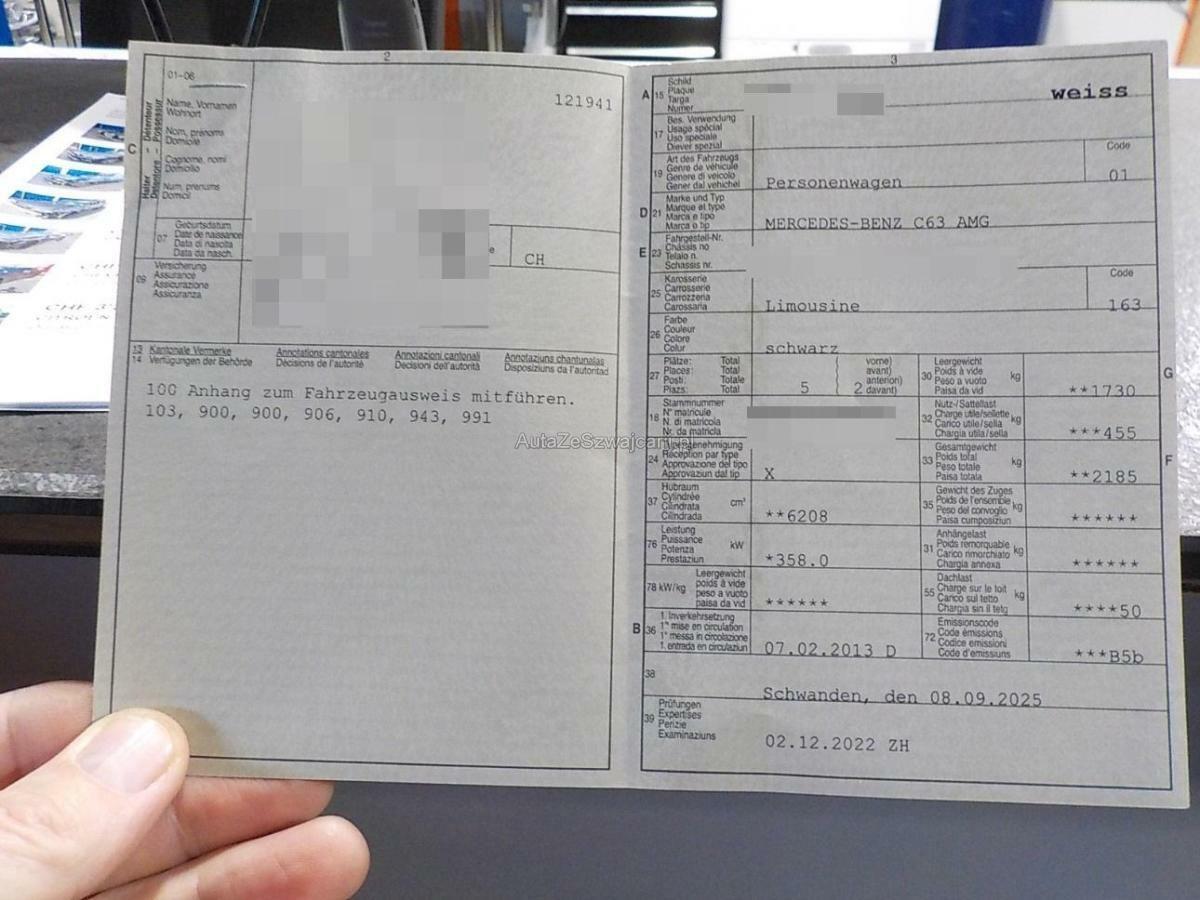 2
01-06
121941
C
Halter - Détenteur
Detentore - Possessur
Name, Vornamen
Wohnort
Nom, prénoms
Domicile
Cognome, nomi
Domicilio
Num, prenums
Domicil
07
Geburtsdatum
Date de naissance
Data di nascita
Data da nasch.
e
CH
09
Versicherung
Assurance
Assicurazione
Assicuranza
13 Kantonale Vermerke
14 Verfügungen der Behörde
Annotations cantonales
Décisions de l'autorité
Annotazioni cantonali
Decisioni dell'autorità
Annotaziuns chantunalas
Disposiziuns da l'autoritad
100 Anhang zum Fahrzeugausweis mitführen.
103, 900, 900, 906, 910, 943, 991
3
A 15
Schild
Plaque
Targa
Numer
weiss
17
Bes. Verwendung
Usage spécial
Uso speciale
Diever spezial
19
Art des Fahrzeugs
Genre de véhicule
Genere di veicolo
Gener dal vehichel
Personenwagen
Code
01
D 21
Marke und Typ
Marque et type
Marca e tipo
Marca e tip
MERCEDES-BENZ C63 AMG
E 23
Fahrgestell-Nr.
Châssis no
Telaio n.
Schassis nr.
25
Karosserie
Carrosserie
Carrozzeria
Carossaria
Limousine
Code
163
26
Farbe
Couleur
Colore
Colur
schwarz
27
Plätze: Total
Places: Total
Posti: Totale
Plazs: Total
5
vorne)
avant)
anteriori)
2 davant)
30
Leergewicht
Poids à vide
Peso a vuoto
Paisa da vid
kg
**1730
G
18
Stammnummer
N° matricule
N. di matricola
Nr. da matricla
32
Nutz-/Sattellast
Charge utile/sellette
Carico utile/sella
Chargia utila/sella
kg
***455
AutaZeSzwajcarii.pl
24
Réception par type
Approvazione del tipo
Approvaziun dal tip
X
33
Gesamtgewicht
Poids total
Peso totale
Paisa totala
kg
**2185
F
37
Hubraum
Cylindrée
Cilindrata
Cilindrada
cm³
**6208
35
Gewicht des Zuges
Poids de l'ensemble
Peso del convoglio
Paisa cumposiziun
kg
******
76
Leistung
Puissance
Potenza
Prestaziun
kW
*358.0
31
Anhängelast
Poids remorquable
Carico rimorchiato
Chargia annexa
kg
******
78 kW/kg
Leergewicht
poids à vide
peso a vuoto
paisa da vid
******
55
Dachlast
Charge sur le toit
Carico sul tetto
Chargia sin il tetg
kg
****50
B 36
1. Inverkehrsetzung
1re mise en circulation
1a messa in circolazione
1. entrada en circulaziun
07.02.2013 D
72
Emissionscode
Code émissions
Codice emissioni
Code d'emissiuns
***B5b
38
Schwanden, den 08.09.2025
39
Prüfungen
Expertises
Perizie
Examinaziuns
02.12.2022 ZH